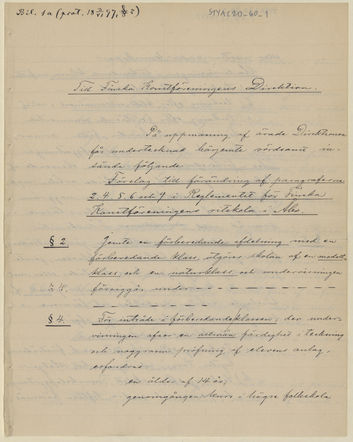 Bil. 1a (prot. 18 3/11 97, § 5)
STYAL20-60-1
Till Finska Konstföreningens Direktion.
På uppmaning af ärade Direktionen
får undertecknad härjemte vördsamt in-
sände följande
Förslag till förändring af paragraferna
2. 4. 5. 6 och 7 i Reglementet för Finska
Konstföreningens ritskola i Åbo.
§ 2. Jemte en förberedande afdelning med en
förberedande klass, utgöres skolan af en modell-
klass och en naturklass och undervisningen
försiggås under
§ 4. För inträde i förberedandeklassen, der under-
visningen afser en allmän färdighet i teckning
och noggrann pröfning af elevens anlag,
erfordras:
en ålder af 14 år,
genomgången kurs i högre folkskola